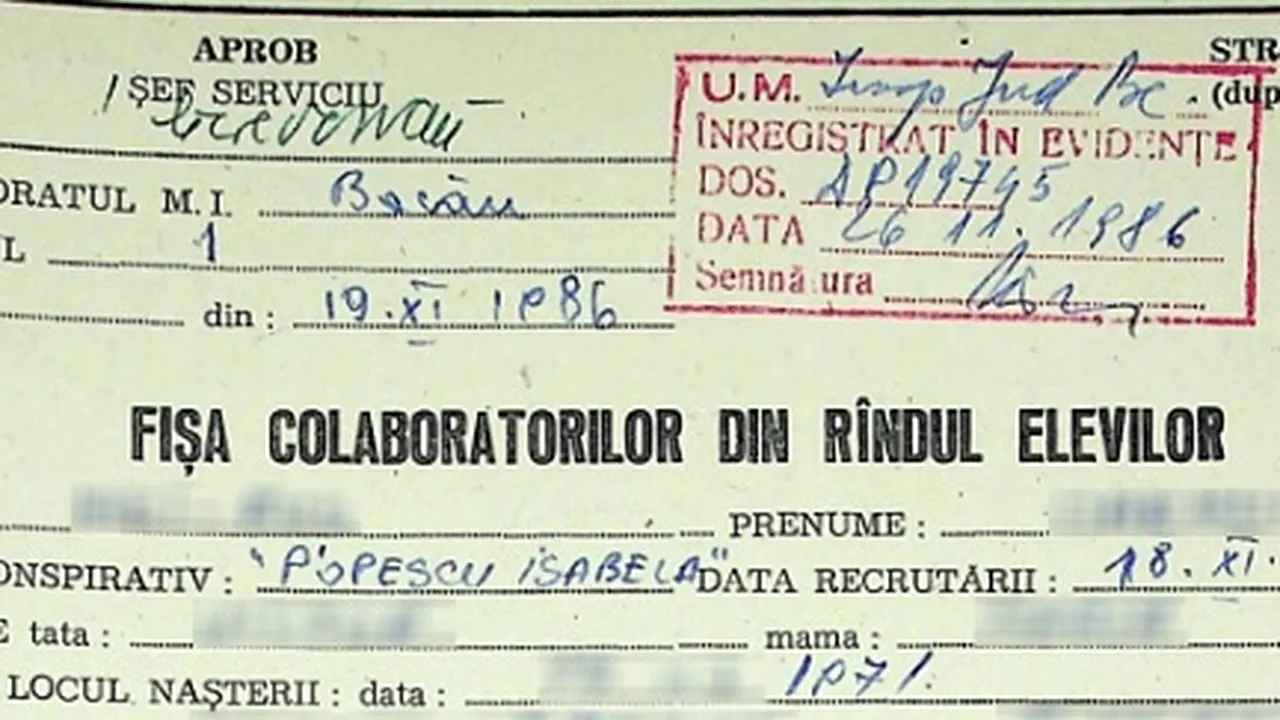 APROB
STR
ŞEF SERVICIU
(dup
U.M. Insp Jud Bc.
ÎNREGISTRAT ÎN EVIDENŢE
ORATUL M.I. Bacău
DOS. AP19745
L 1
DATA 26 11. 1986
din : 19.XI 1986
Semnătura
FIŞA COLABORATORILOR DIN RÎNDUL ELEVILOR
PRENUME :
ONSPIRATIV : "POPESCU ISABELA" DATA RECRUTĂRII : 18. XI.
E tata : mama :
LOCUL NAŞTERII : data : 1971.